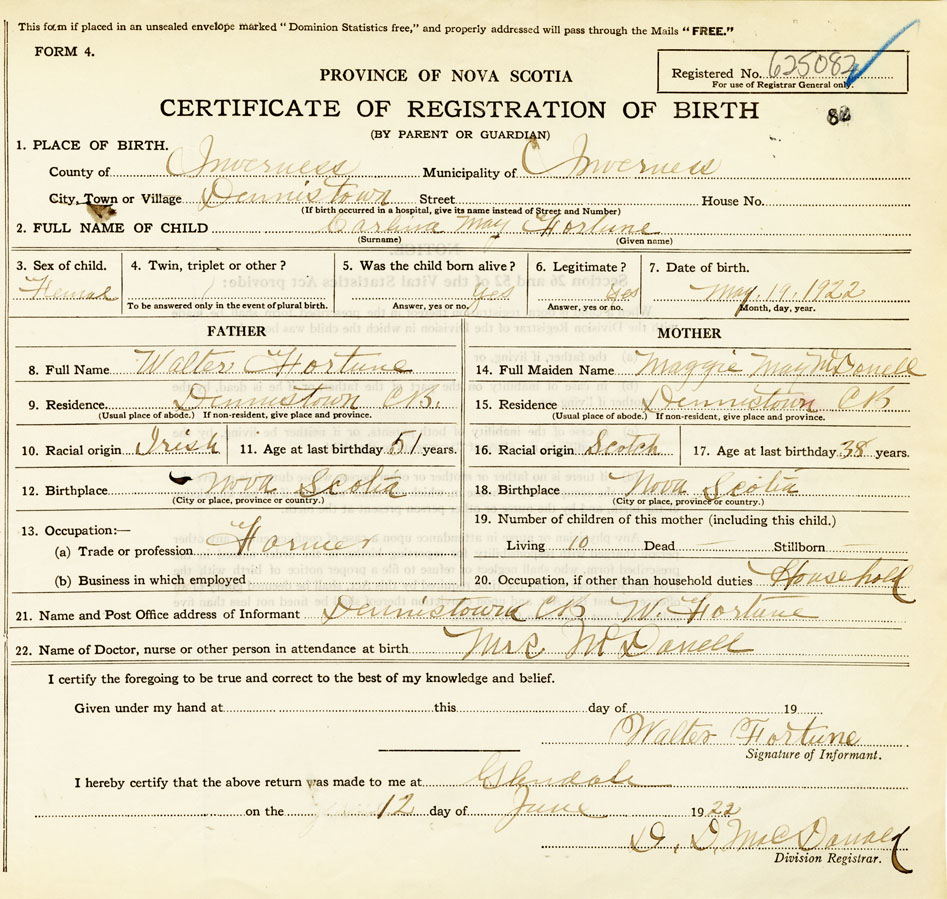 This form if placed in an unsealed envelope marked "Dominion Statistics free," and properly addressed will pass through the Mails "FREE."
FORM 4.
PROVINCE OF NOVA SCOTIA
Registered No. 625082
For use of Registrar General only.
CERTIFICATE OF REGISTRATION OF BIRTH
82
(BY PARENT OR GUARDIAN)
1. PLACE OF BIRTH.
County of Inverness Municipality of Inverness
City, Town or Village Dennistown Street House No.
(If birth occurred in a hospital, give its name instead of Street and Number)
2. FULL NAME OF CHILD May Fortune
(Surname) (Given name)
3. Sex of child. 4. Twin, triplet or other? 5. Was the child born alive? 6. Legitimate? 7. Date of birth.
Femal Yes Yes May. 19. 1922
To be answered only in the event of plural birth. Answer, yes or no. Answer, yes or no. Month, day, year.
FATHER MOTHER
8. Full Name Walter Fortune 14. Full Maiden Name Maggie May McDonell
9. Residence Dennistown CB. 15. Residence Dennistown CB
(Usual place of abode.) If non-resident, give place and province. (Usual place of abode.) If non-resident, give place and province.
10. Racial origin Irish 11. Age at last birthday 51 years. 16. Racial origin Scotch 17. Age at last birthday 38 years.
12. Birthplace Nova Scotia 18. Birthplace Nova Scotia
(City or place, province or country.) (City or place, province or country.)
13. Occupation:— 19. Number of children of this mother (including this child.)
(a) Trade or profession Farmer Living 10 Dead — Stillborn —
(b) Business in which employed 20. Occupation, if other than household duties Household
21. Name and Post Office address of Informant Dennistown CB W. Fortune
22. Name of Doctor, nurse or other person in attendance at birth Mrs McDonell
I certify the foregoing to be true and correct to the best of my knowledge and belief.
Given under my hand at this day of 19
Walter Fortune
Signature of Informant.
I hereby certify that the above return was made to me at Glendale
on the 12 day of June 1922
D. D. MacDonald
Division Registrar.